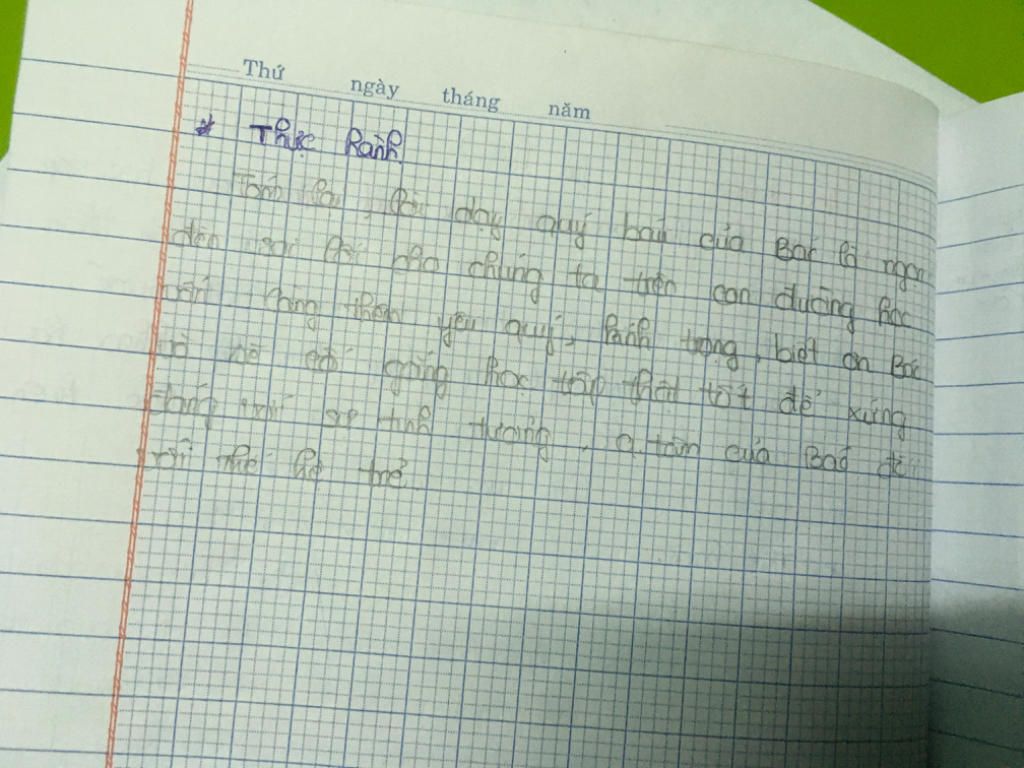 Thứ ngày tháng năm
* Thực hành
Tóm lại, lời dạy quý báu của Bác là ngọn
đèn soi lối cho chúng ta trên con đường học
vấn. Càng thêm yêu quý, kính trọng, biết ơn Bác
cố gắng học tập thật tốt để xứng
đáng với sự tin tưởng, q. tâm của Bác đối
với thế hệ trẻ